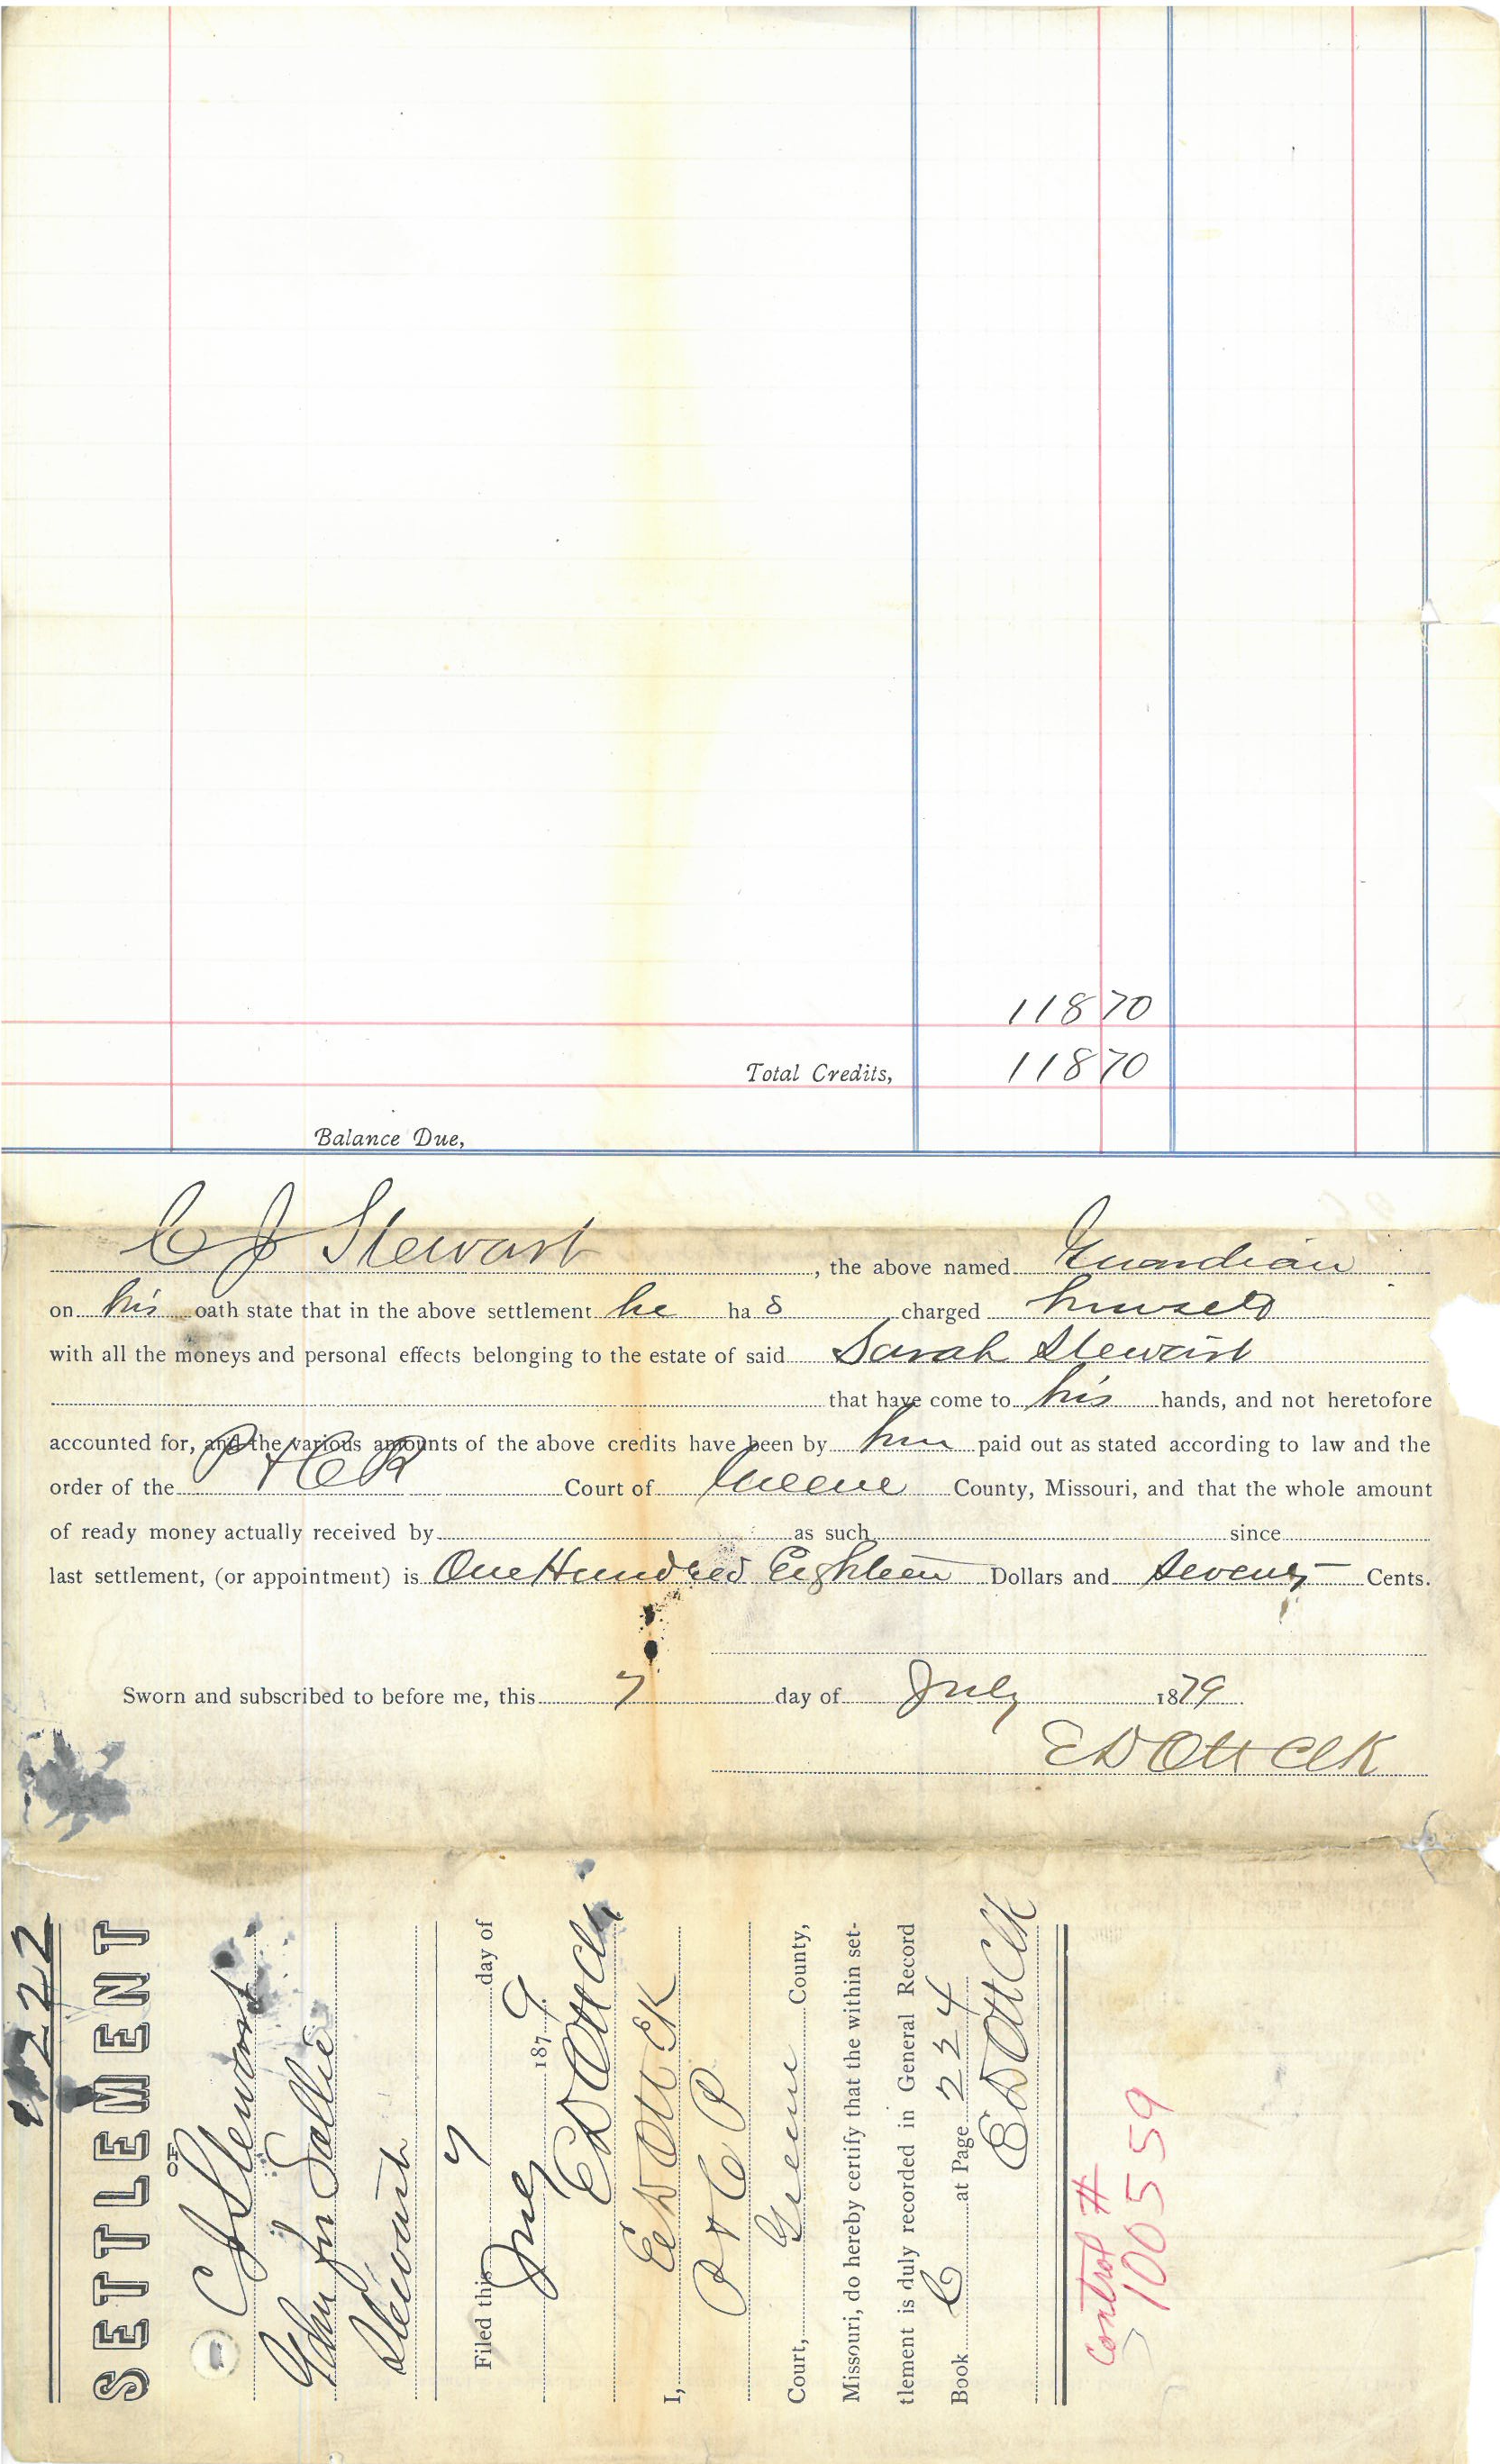 118 70
Total Credits, 118 70
Balance Due,
C J Stewart, the above named Guardian
on his oath state that in the above settlement he ha s charged himself
with all the moneys and personal effects belonging to the estate of said Sarah Stewart
that have come to his hands, and not heretofore
accounted for, and the various amounts of the above credits have been by him paid out as stated according to law and the
order of the Court of Greene County, Missouri, and that the whole amount
of ready money actually received by as such since
last settlement, (or appointment) is One Hundred Eighteen Dollars and Seventy Cents.
Sworn and subscribed to before me, this 7 day of July 1879.
E D Ott Clk
222
SETTLEMENT
OF
C J Stewart
Gdn for Sallie
Stewart
Filed this 7 day of
July 1879.
E D Ott Clk
I, E D Ott Clk
P & C P
Court, Greene County,
Missouri, do hereby certify that the within set-
tlement is duly recorded in General Record
Book C at Page 224
E D Ott Clk
Control #
100559